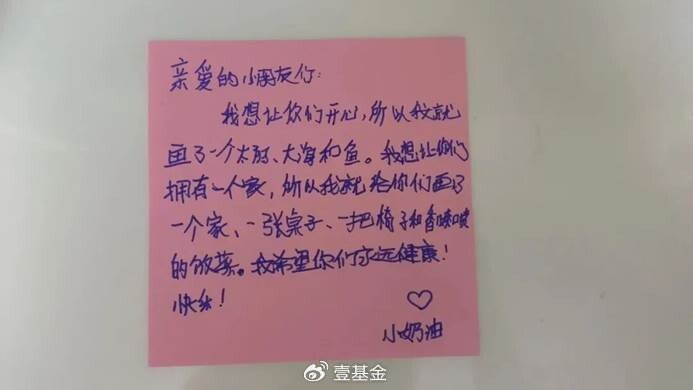 亲爱的小朋友们:
我想让你们开心,所以我就
画了一个太阳、大海和鱼。我想让你们
拥有一个家,所以我就给你们画了
一个家、一张桌子、一把椅子和香喷喷
的饭菜。我希望你们永远健康!
快乐!
小奶油
壹基金